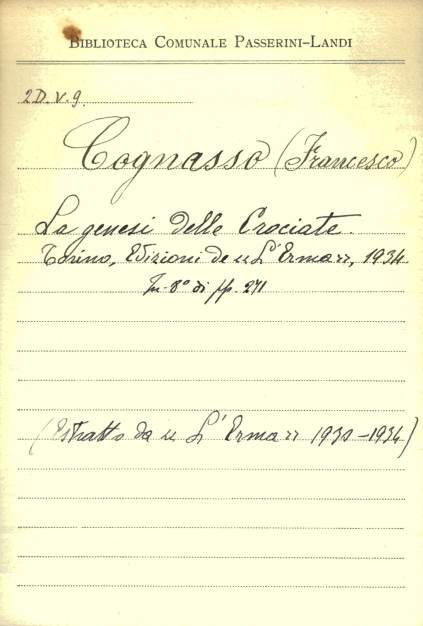 BIBLIOTECA COMUNALE PASSERINI-LANDI
2D.V.9.
Cognasso (Francesco)
La genesi delle Crociate.
Torino, Edizioni de "L'Erma", 1934
In-8° di pp. 271
(Estratto da "L'Erma" 1930-1934)